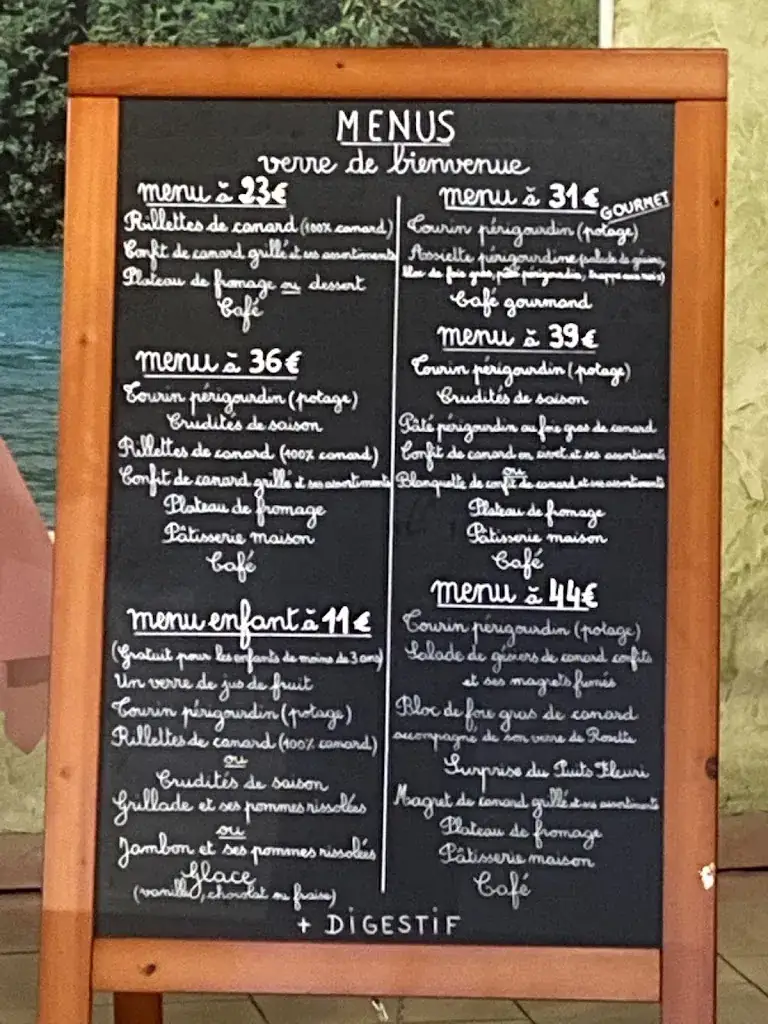 MENUS
verre de bienvenue
menu à 23€
Rillettes de canard (100% canard)
Confit de canard grillé et ses assortiments
Plateau de fromage ou dessert
Café
menu à 36€
Tourin périgourdin (potage)
Crudités de saison
Rillettes de canard (100% canard)
Confit de canard grillé et ses assortiments
Plateau de fromage
Pâtisserie maison
Café
menu enfant à 11€
(Gratuit pour les enfants de moins de 3 ans)
Un verre de jus de fruit
Tourin périgourdin (potage)
Rillettes de canard (100% canard)
ou
Crudités de saison
Grillade et ses pommes rissolées
ou
Jambon et ses pommes rissolées
Glace
(vanille, chocolat ou fraise)
menu à 31€ GOURMET
Tourin périgourdin (potage)
Assiette périgourdine (salade de gésiers,
bloc de foie gras, pâté périgourdin,
Café gourmand
menu à 39€
Tourin périgourdin (potage)
Crudités de saison
Pâté périgourdin au foie gras de canard
Confit de canard en civet et ses assortiments
ou
Blanquette de confit de canard et ses assortiments
Plateau de fromage
Pâtisserie maison
Café
menu à 44€
Tourin périgourdin (potage)
Salade de gésiers de canard confits
et ses magrets fumés
Bloc de foie gras de canard
accompagné de son verre de Rosette
Surprise du Puits Fleuri
Magret de canard grillé et ses assortiments
Plateau de fromage
Pâtisserie maison
Café
+ DIGESTIF